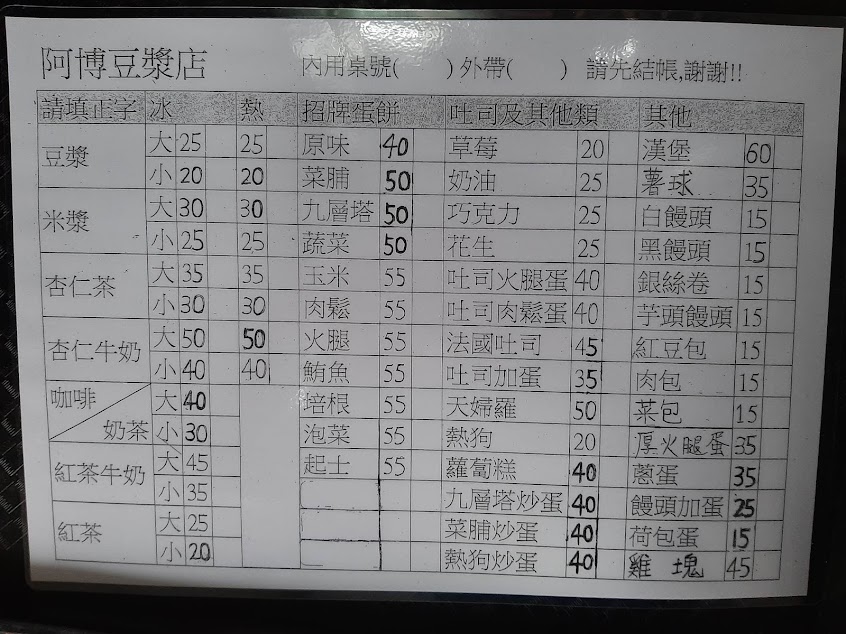 阿博豆漿店 內用桌號( ) 外帶( ) 請先結帳,謝謝!!
請填正字 冰 熱 招牌蛋餅 吐司及其他類 其他
豆漿 大 25 25 原味 40 草莓 20 漢堡 60
小 20 20 菜脯 50 奶油 25 薯球 35
米漿 大 30 30 九層塔 50 巧克力 25 白饅頭 15
小 25 25 蔬菜 50 花生 25 黑饅頭 15
杏仁茶 大 35 35 玉米 55 吐司火腿蛋 40 銀絲卷 15
小 30 30 肉鬆 55 吐司肉鬆蛋 40 芋頭饅頭 15
杏仁牛奶 大 50 50 火腿 55 法國吐司 45 紅豆包 15
小 40 40 鮪魚 55 吐司加蛋 35 肉包 15
咖啡 大 40 培根 55 天婦羅 50 菜包 15
奶茶 小 30 泡菜 55 熱狗 20 厚火腿蛋 35
紅茶牛奶 大 45 起士 55 蘿蔔糕 40 蔥蛋 35
小 35 九層塔炒蛋 40 饅頭加蛋 25
紅茶 大 25 菜脯炒蛋 40 荷包蛋 15
小 20 熱狗炒蛋 40 雞塊 45